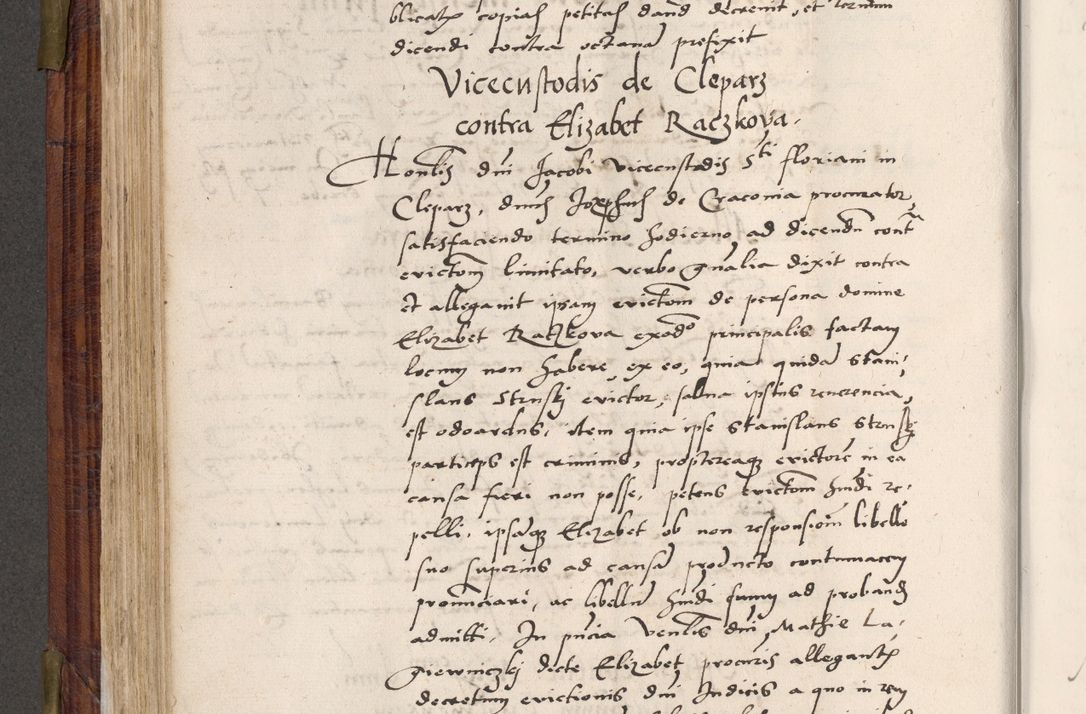 blicatæ copias petitas dand decrevit, et terminum
dicendi contra octavam prefixit
Vicecustodis de Cleparz
contra Elizabet Raczkova.
Honlis dni Jacobi vicecustodis Sti floriani in
Cleparz, dnus Josephus de Cracovia procurator,
satisfaciendo termino hodierno ad dicendu contra
evictom limitato, verbo gnalia dixit contra
et allegavit ipsam evictom de persona domine
Elizabet Raczkova ex odo principalis factam
locum non habere, ex eo, quia quidam Stani-
slaus Strusky evictor, salva ipsius reverencia,
est odoardus, item quia ipse Stanislaus Strusky
particeps est criminis, propterea evictore in ea
causa fieri non posse, petens evictom hmdi re-
pelli, ipsamq Elizabet ob non responsiom libello
suo superius ad causam producto contumacem
pronunciari, ac libellum hmdi suum ad proband
admitti. In pncia venlis dni Mathie La-
giewniczky dicte Elizabet procuris allegantis
decretum evictionis dni Judicis a quo in rem